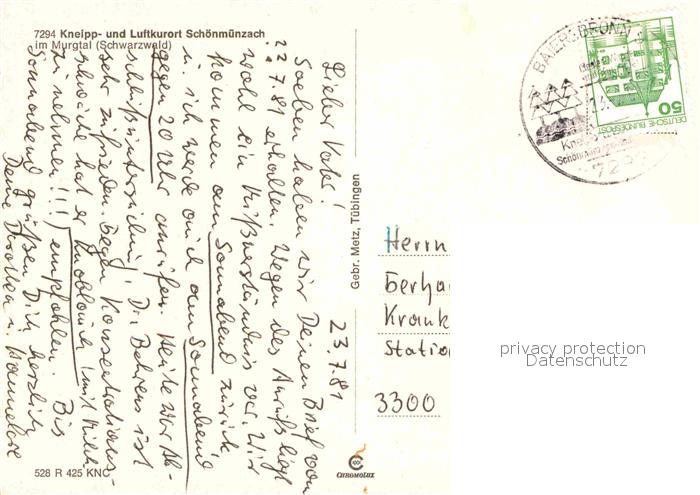 7294 Kneipp- und Luftkurort Schönmünzach
im Murgtal (Schwarzwald)
23.7.81
Lieber Vati!
Soeben haben wir Deinen Brief vom
22.7.81 erhalten. Wegen des Anrufs liegt
wohl ein Mißverständnis vor. Wir
kommen am Sonnabend zurück
u. ich werde mich am Sonnabend
gegen 20 Uhr anrufen. Heute war Ab-
schlußuntersuchung! Dr. Behrens ist
sehr zufrieden. Gegen Konzentrations-
schwäche hat er Knoblauch (mit Milch
zu nehmen!!!) empfohlen. Bis
Sonnabend grüßen Dich herzlich
Deine Dorothea u. Hannelore
528 R 425 KNC
Gebr. Metz, Tübingen
CHROMOLUX
BAIERSBRONN
Schönmünzach
729
50
DEUTSCHE BUNDESPOST
Herrn
Gerha
Krank
Statio
3300
privacy protection
Datenschutz